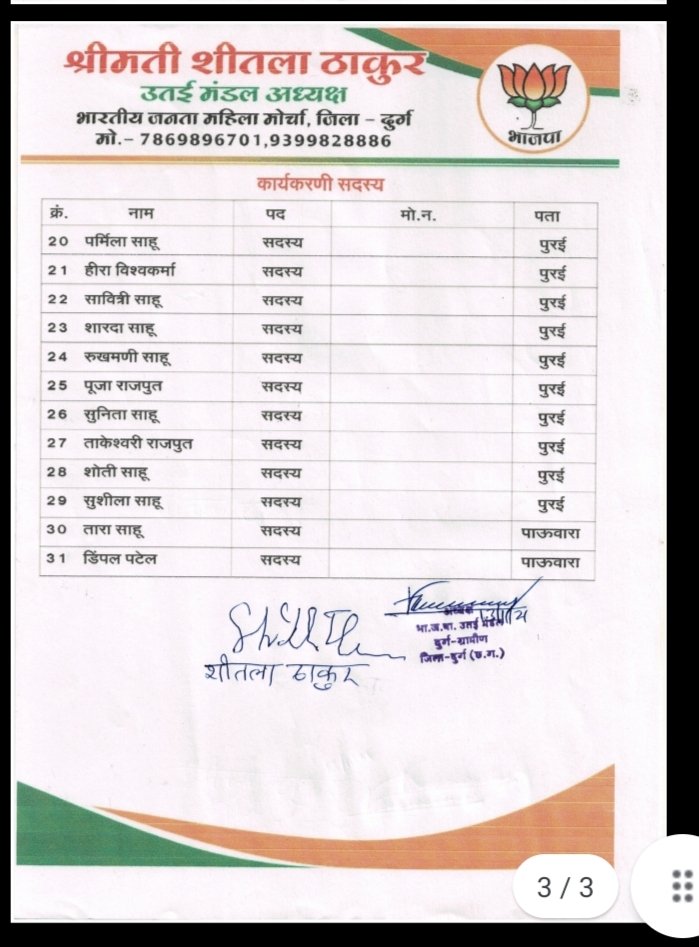 श्रीमती शीतला ठाकुर
उतई मंडल अध्यक्ष
भारतीय जनता महिला मोर्चा, जिला – दुर्ग
मो.– 7869896701,9399828886
भाजपा
कार्यकरणी सदस्य
क्रं. नाम पद मो.न. पता
20 पर्मिला साहू सदस्य पुरई
21 हीरा विश्वकर्मा सदस्य पुरई
22 सावित्री साहू सदस्य पुरई
23 शारदा साहू सदस्य पुरई
24 रुखमणी साहू सदस्य पुरई
25 पूजा राजपुत सदस्य पुरई
26 सुनिता साहू सदस्य पुरई
27 ताकेश्वरी राजपुत सदस्य पुरई
28 शोती साहू सदस्य पुरई
29 सुशीला साहू सदस्य पुरई
30 तारा साहू सदस्य पाऊवारा
31 डिंपल पटेल सदस्य पाऊवारा
शीतला ठाकुर
अध्यक्ष
भा.ज.पा. उतई मंडल
दुर्ग-ग्रामीण
जिला-दुर्ग (छ.ग.)
3 / 3